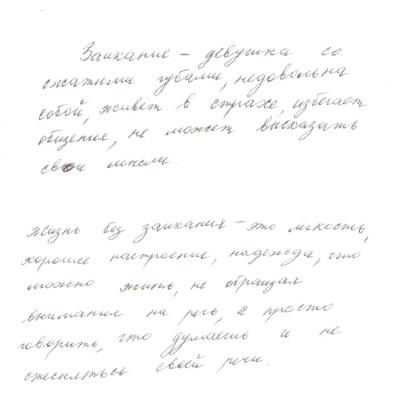 Заикание – девушка со
сжатыми губами, недовольна
собой, живёт в страхе, избегает
общение, не может высказать
свои мысли.
Жизнь без заикания – это легкость,
хорошее настроение, надежда, что
можно жить, не обращая
внимание на речь, а просто
говорить, что думаешь и не
стесняться своей речи.